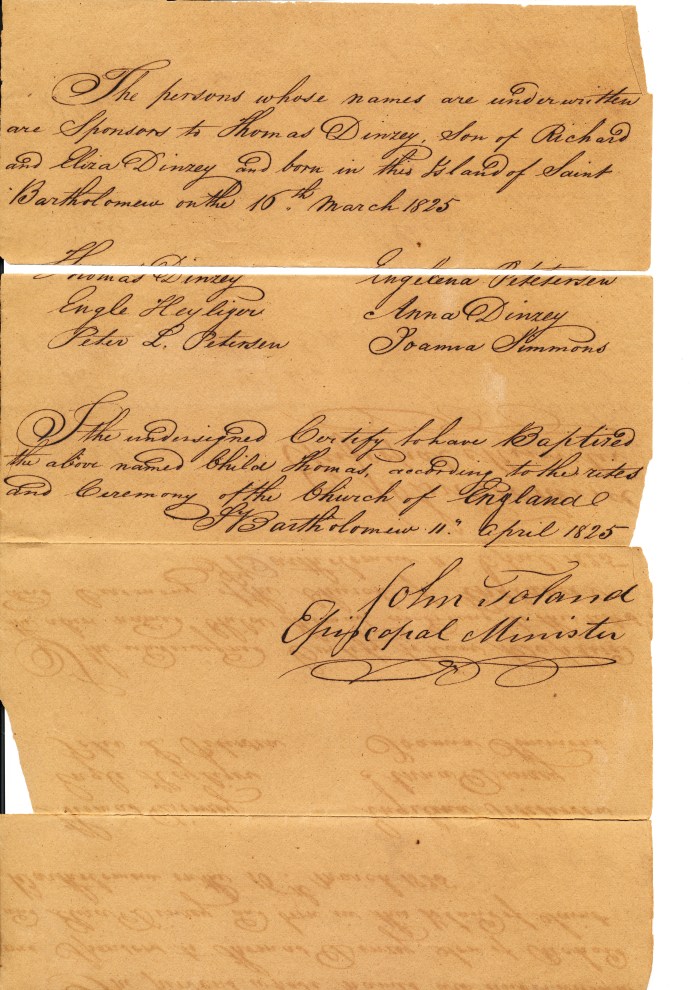 The persons whose names are underwritten
are Sponsors to Thomas Dinzey, Son of Richard
and Eliza Dinzey and born in this Island of Saint
Bartholomew on the 16th. March 1825
Thomas Dinzey Engelena Petetersen
Engle Heyliger Anna Dinzey
Peter L. Petersen Joanna Simmons
I the undersigned Certify to have Baptized
the above named Child Thomas, according to the rites
and Ceremony of the Church of England
St Bartholomew 11" April 1825
John Toland
Episcopal Minister